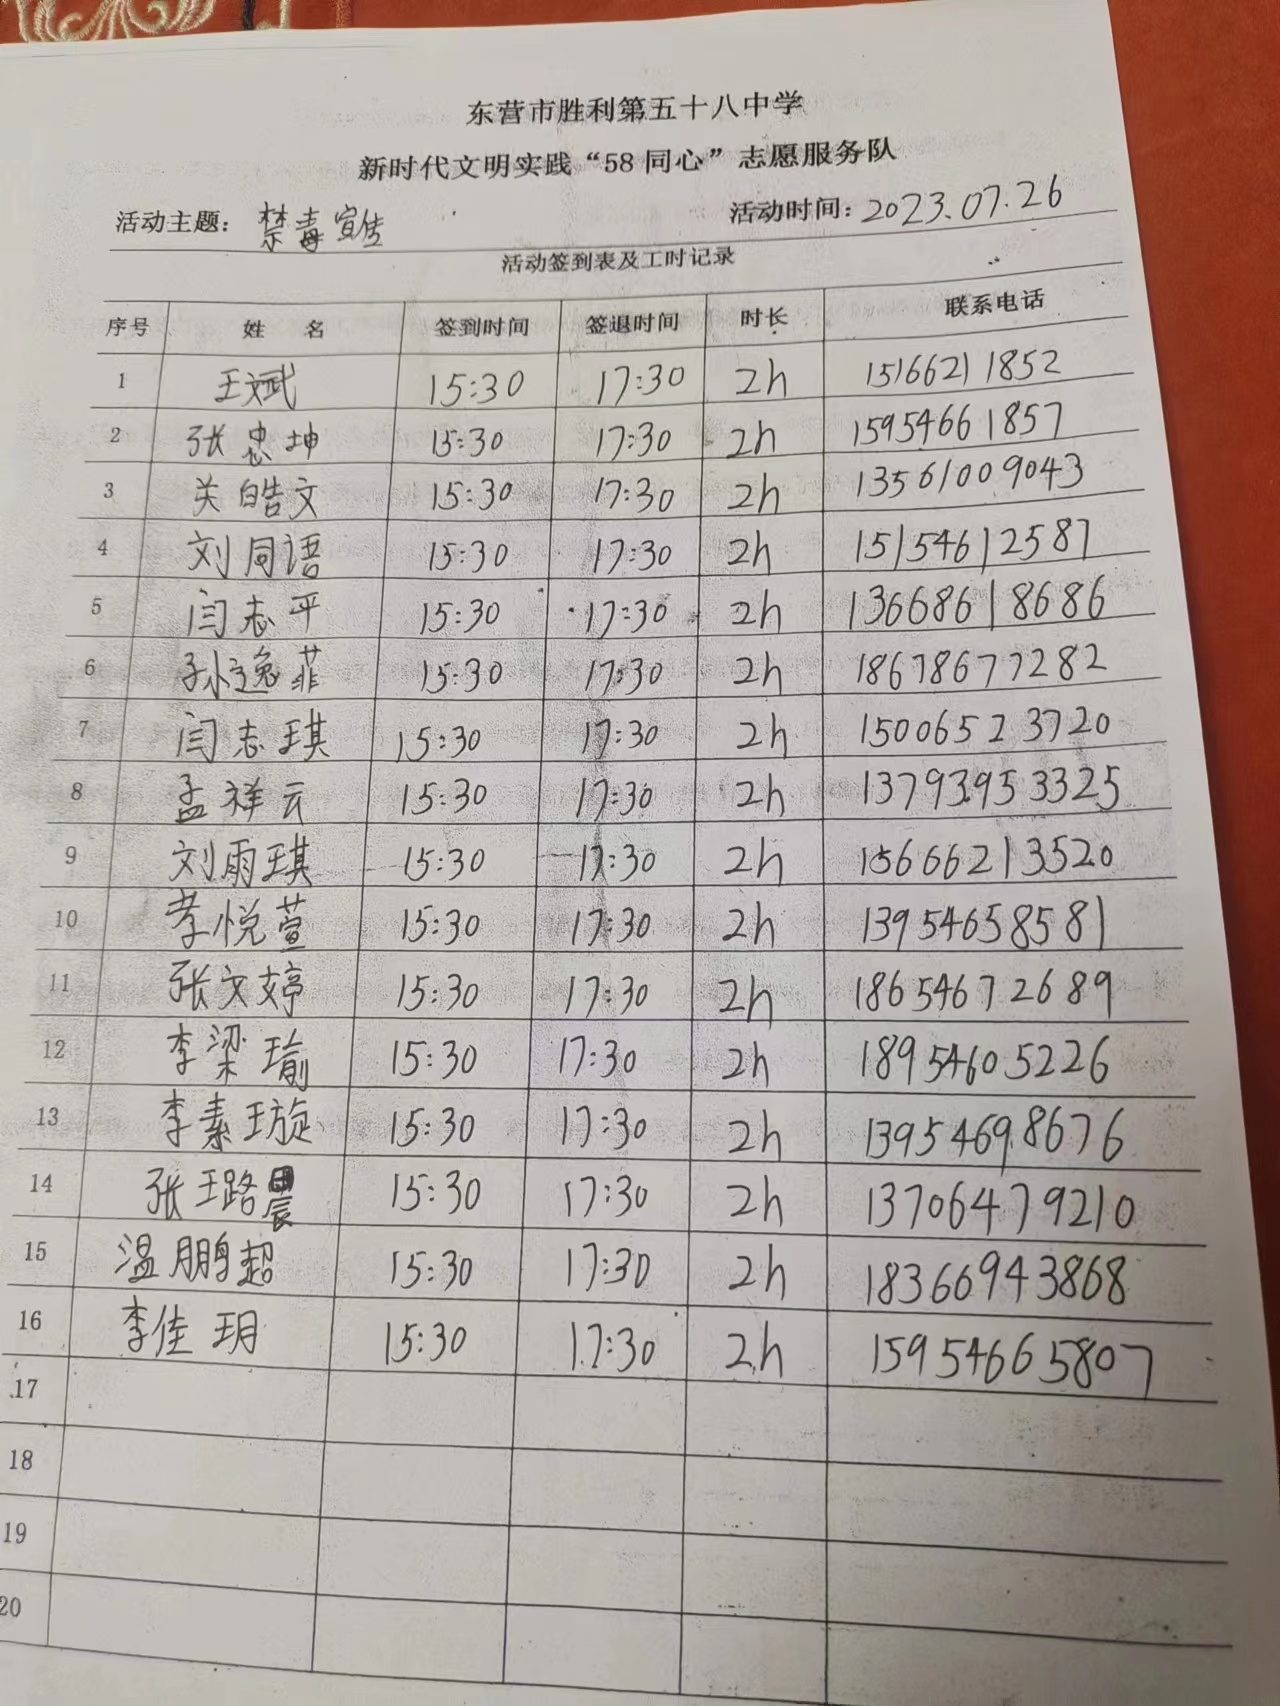 东营市胜利第五十八中学
新时代文明实践“58同心”志愿服务队
活动主题： 禁毒宣传 活动时间：2023.07.26
活动签到表及工时记录
序号 姓 名 签到时间 签退时间 时长 联系电话
1 王斌 15:30 17:30 2h 15166211852
2 张忠坤 15:30 17:30 2h 15954661857
3 关皓文 15:30 17:30 2h 13561009043
4 刘同语 15:30 17:30 2h 15154612587
5 闫志平 15:30 17:30 2h 13668618686
6 孙逸菲 15:30 17:30 2h 18678677282
7 闫志琪 15:30 17:30 2h 15006523720
8 孟祥云 15:30 17:30 2h 13793953325
9 刘雨琪 15:30 17:30 2h 15666213520
10 李悦萱 15:30 17:30 2h 13954658581
11 张文婷 15:30 17:30 2h 18654672689
12 李梁瑜 15:30 17:30 2h 18954605226
13 李素璇 15:30 17:30 2h 13954698676
14 张璐晨 15:30 17:30 2h 13706479210
15 温鹏超 15:30 17:30 2h 18366943868
16 李佳玥 15:30 17:30 2h 15954665807
17
18
19
20